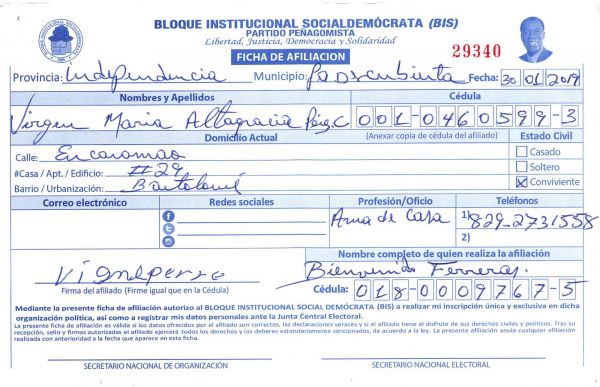 BLOQUE INSTITUCIONAL SOCIALDEMÓCRATA (BIS)
PARTIDO PEÑAGOMISTA
Libertad, Justicia, Democracia y Solidaridad
29340
FICHA DE AFILIACION
Provincia: Independencia Municipio: Fecha: 30 01 2019
Nombres y Apellidos Cédula
Virgen Maria Altagracia 001-0460599-3
Domicilio Actual (Anexar copia de cédula del afiliado) Estado Civil
Calle: Casado
#Casa / Apt. / Edificio: #29 Soltero
Barrio / Urbanización: Bartolomé X Conviviente
Correo electrónico Redes sociales Profesión/Oficio Teléfonos
Ama de Casa 1) 829-2731558
2)
Nombre completo de quien realiza la afiliación
Bienvenido Ferreras.
Firma del afiliado (Firme igual que en la Cédula) Cédula: 018-0009767-5
Mediante la presente ficha de afiliación autorizo al BLOQUE INSTITUCIONAL SOCIAL DEMÓCRATA (BIS) a realizar mi inscripción única y exclusiva en dicha
organización política, así como a registrar mis datos personales ante la Junta Central Electoral.
La presente ficha de afiliación es válida si los datos ofrecidos por el afiliado son correctos, las declaraciones veraces y si el afiliado tiene el disfrute de sus derechos civiles y políticos. Tras su
recepción, sello y firmas autorizadas el afiliado ejercerá todos los derechos y los deberes estatutariamente sancionados, de acuerdo a la ley. La presente afiliación anula cualquier afiliación
realizada con anterioridad a la fecha que aparece en esta ficha.
SECRETARIO NACIONAL DE ORGANIZACIÓN SECRETARIO NACIONAL ELECTORAL